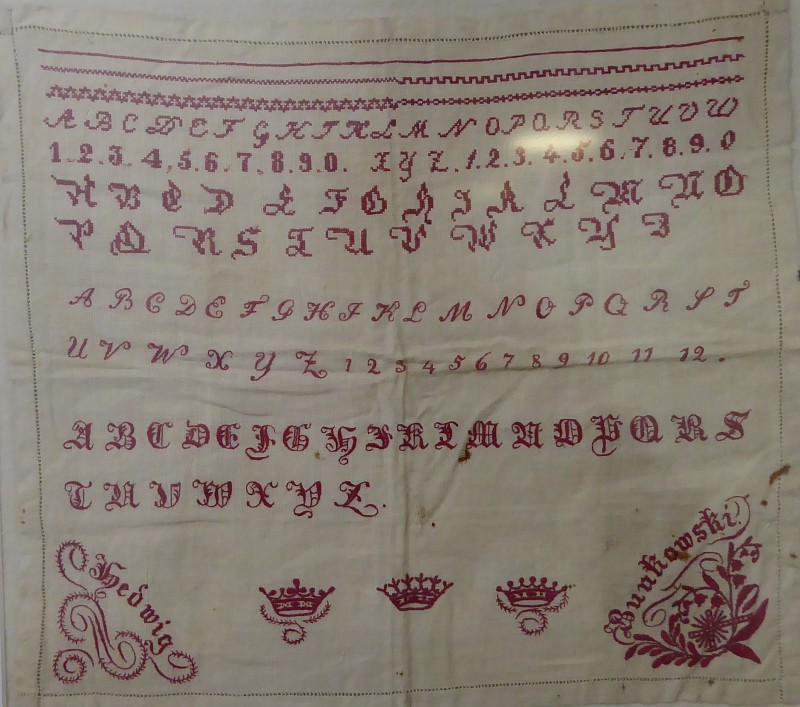 A B C D E F G H I K L M N O P Q R S T U V W
1.2.3.4,5.6.7.8.9.0. X Y Z.1.2.3.4.5.6.7.8.9.0
A B C D E F G H I K L M N O
P Q R S T U V W X Y Z
A B C D E F G H I K L M N O P Q R S T
U V W X Y Z 1 2 3 4 5 6 7 8 9 10 11 12.
A B C D E F G H I K L M N O P Q R S
T U V W X Y Z.
Hedwig
Bunkowski.